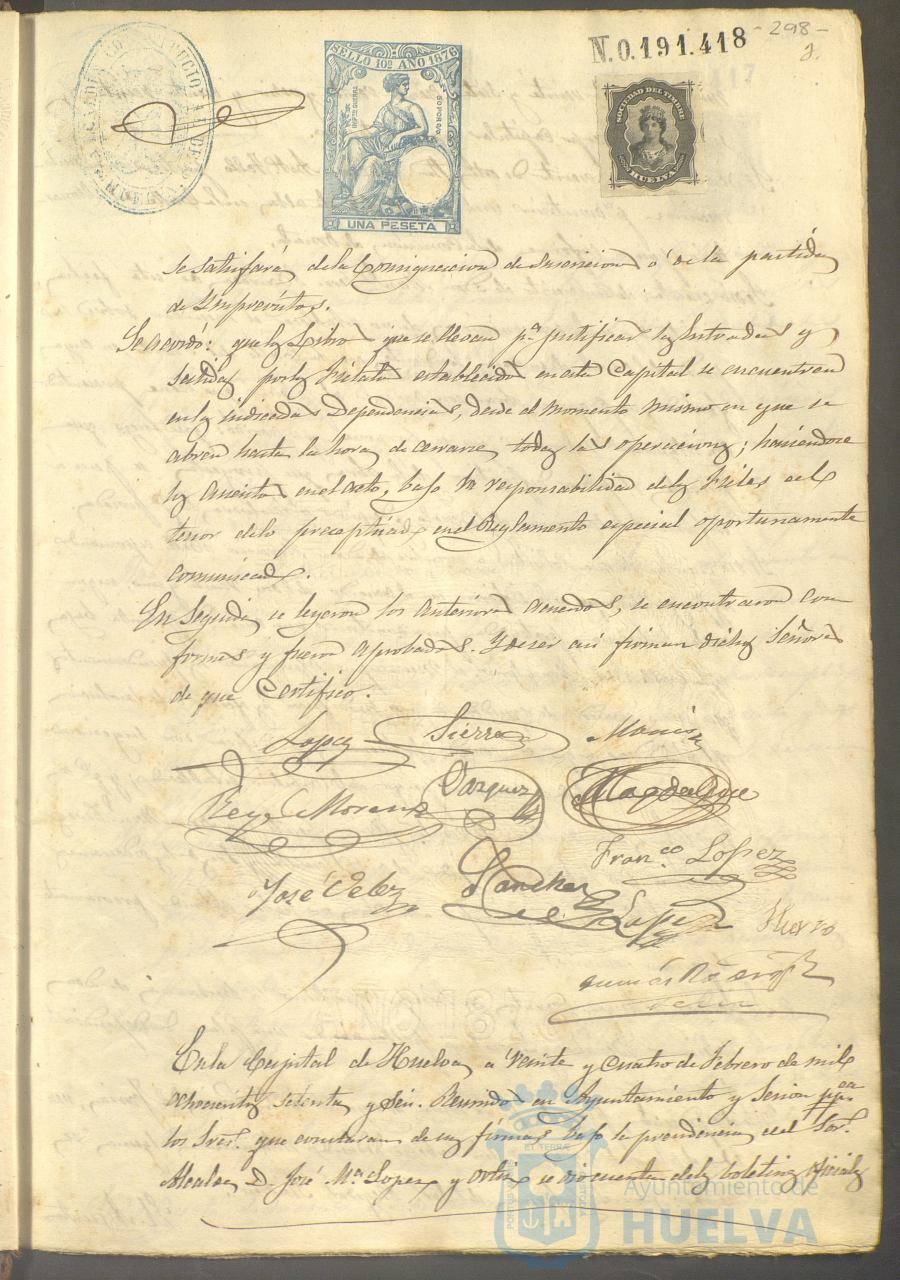 -298-
N.0.191.418
SELLO 10º AÑO 1876
IMPTO GUERRA
50 POR 0/0
UNA PESETA
SOCIEDAD DEL TIMBRE
HUELVA
se satisfará de la Consignacion de Suscricion ó de la partida
de Imprevistos.
Se acordó: que los Libros que se llevan pª justificar las Entradas y
Salidas por los Fielatos establecidos en esta Capital se encuentren
en las indicadas Dependencias, desde el momento mismo en que se
abren hasta la hora de cerrarse todas las operaciones; haciendose
los asientos en el acto, bajo la responsabilidad de los Fieles al
tenor de lo preceptuado en el Reglamento especial oportunamente
comunicado.
En seguida se leyeron los anteriores acuerdos, se encontraron con
formes y fueron aprobados. Y de ser asi firman dichos Señores
de que Certifico.
Lopez Sierra
Rey Moreno Vazquez Magdalena
Franco Lopez
José Velez Sanchez Lopez
En la Capital de Huelva a Veinte y Cuatro de Febrero de mil
ochocientos setenta y seis. Reunidos en Ayuntamiento y Sesion
los Sres. que constaran de sus firmas bajo la presidencia del Sor.
Alcalde D. José Mª Lopez y Ortiz se dio cuenta de los boletines oficiales
Ayuntamiento de
HUELVA